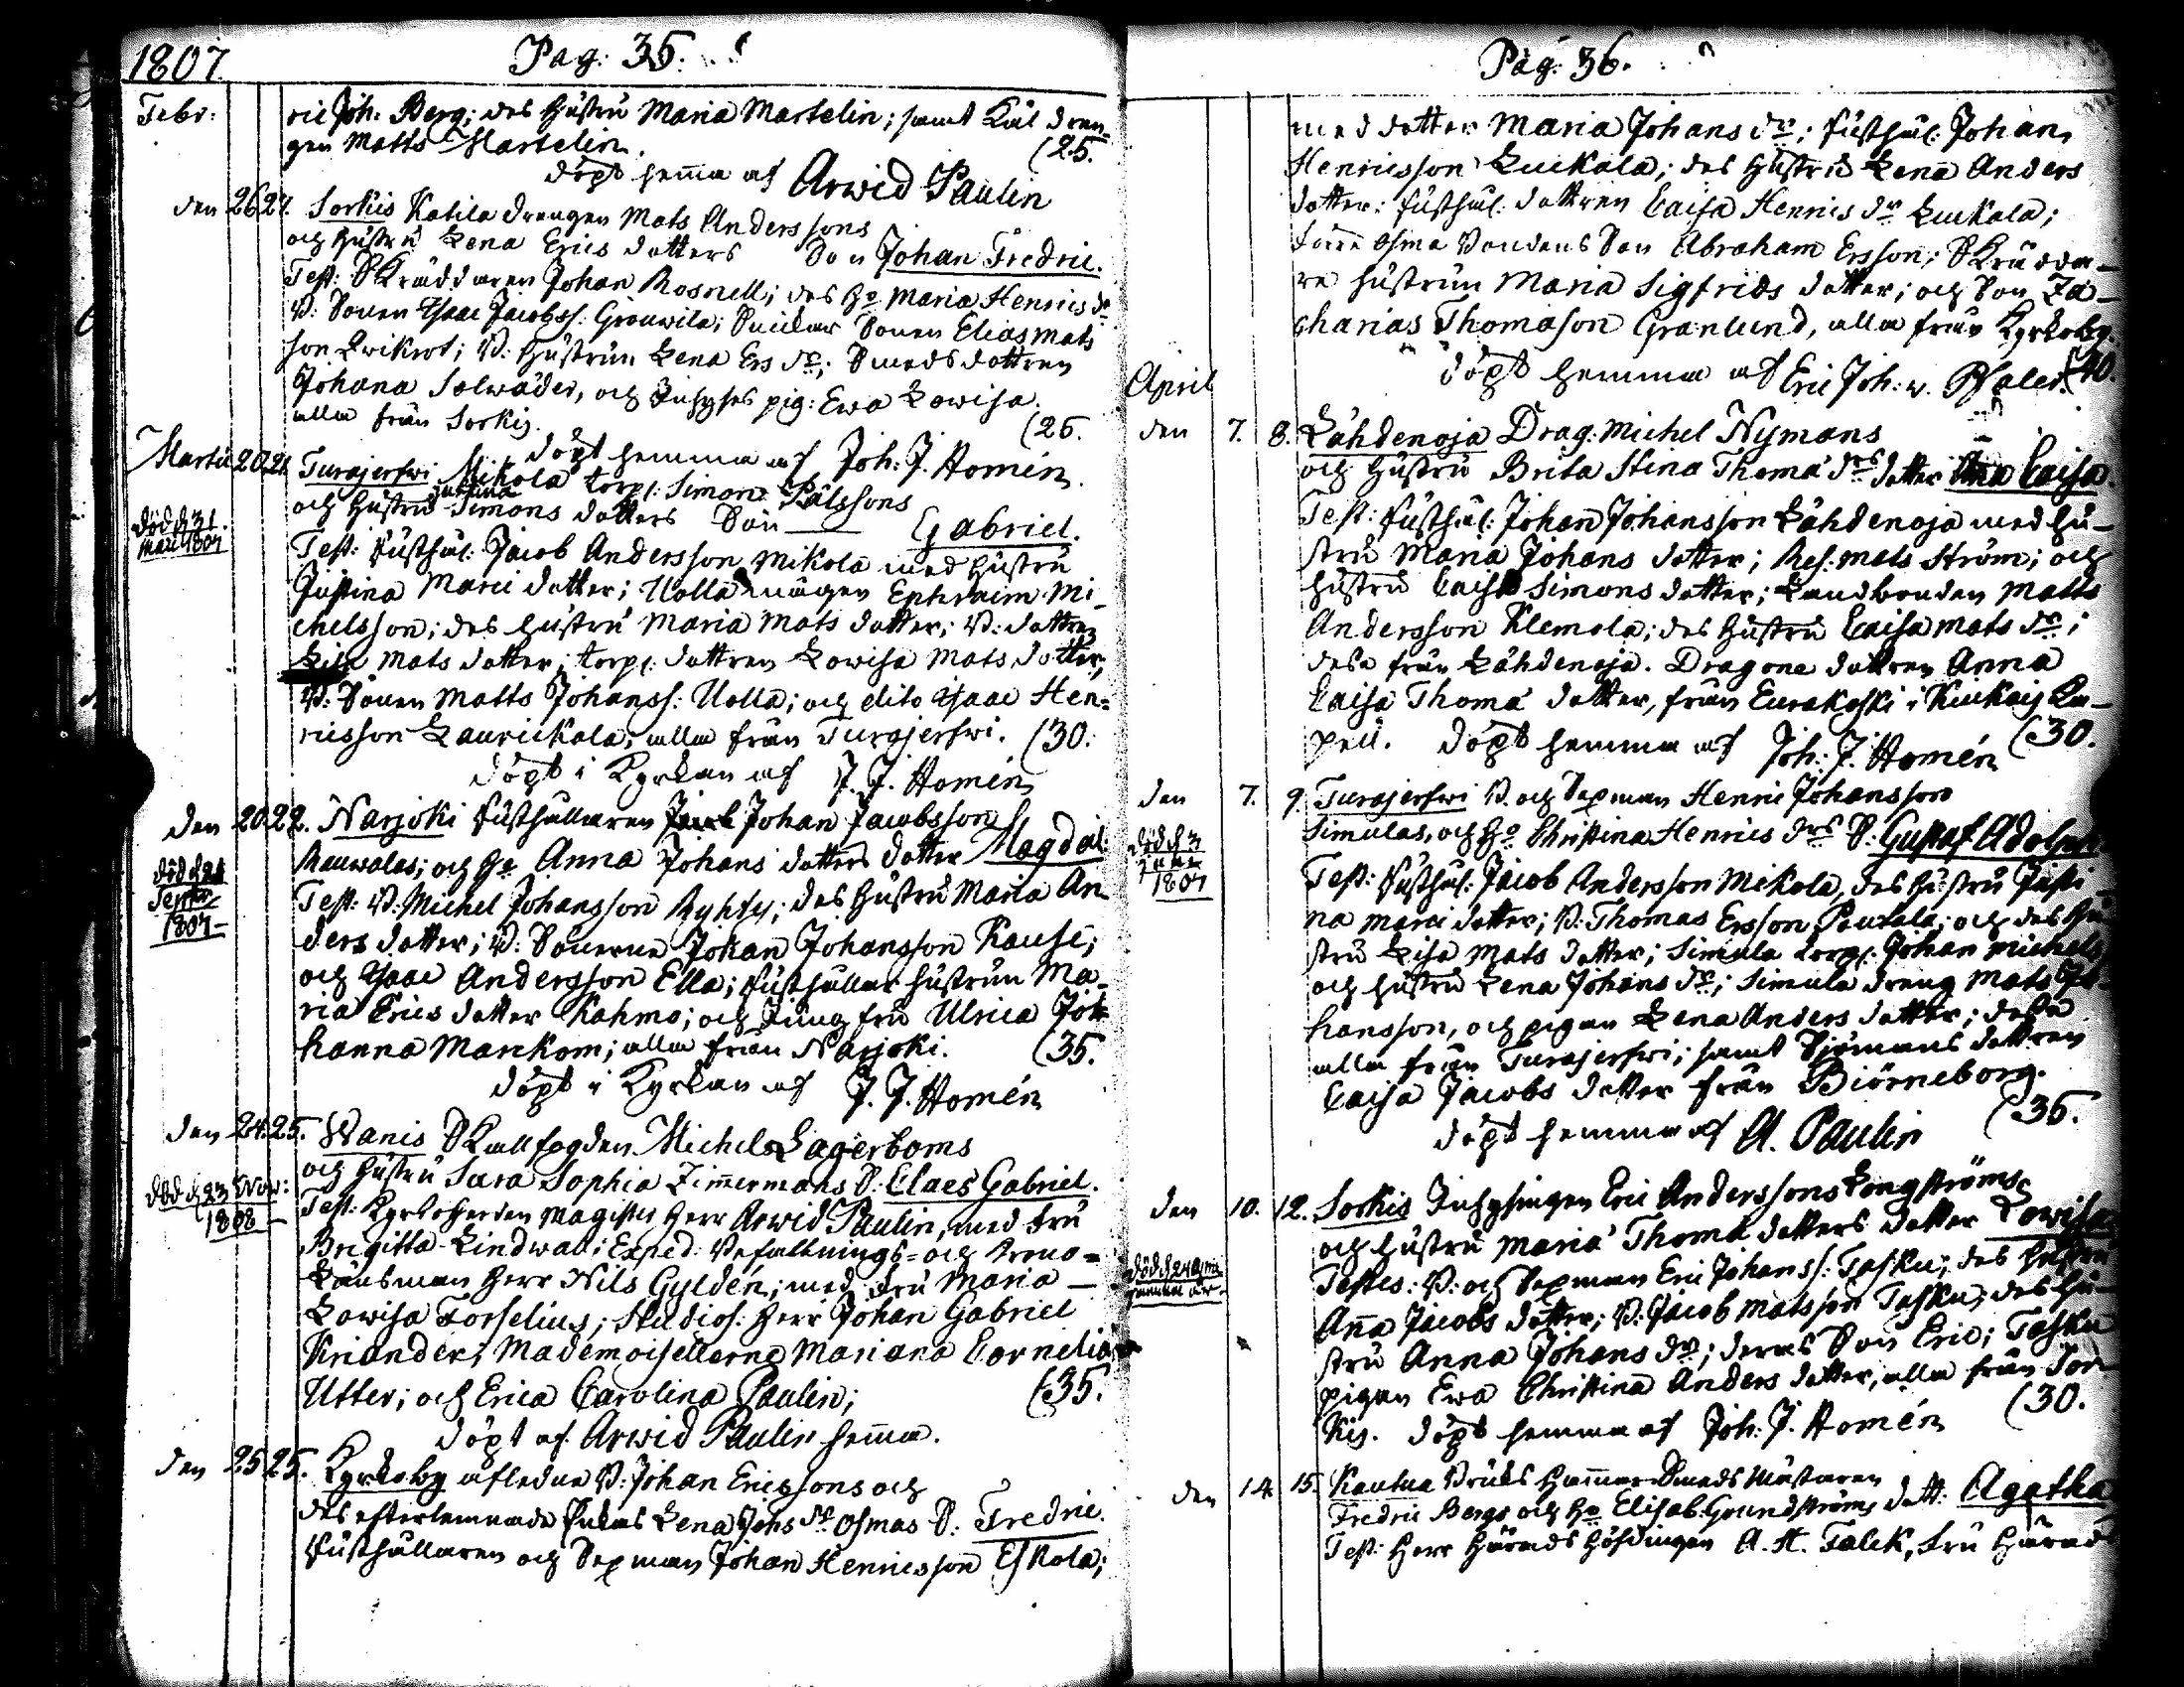 1807. Pag: 35.
Febr: ric Joh: Berg; des Hustru Maria Martelin; samt Kål dren-
gen Matts Martelin. (25.
döpt hem̄a af Arwid Paulin
den 26 27. Sorkis Katila drengen Mats Anderssons
och Hustru Lena Erics dotters Son Johan Fredric.
Test: Skräddaren Johan Rosnell; des Ho Maria Henrics dr
B: Sonen Isaac Jacobss: Grouwila; Sonen Elias Mats
son Qwikrot; B: Hustrun Lena Ers dr; Smedsdottren
Johana Solwäder, och Inhyses pig: Ewa Lowisa.
alla från Sorkis. (25.
döpt hemma af Joh: J. Homén.
Martii 20 21. Turajerfwi Mikola torp: Simon Pålssons
och Hustru Justina Simons dotters Son Gabriel.
död d 31. Mart: 1807
Test: Rusthål: Jacob Andersson Mikola med Hustru
Justina Marci dotter; Uolla mågen Ephraim Mi-
chelsson; des Hustru Maria Mats dotter; B: dottren
Lisa Mats dotter; torp: dottren Lowisa Mats dotter;
B: Sonen Matts Johanss: Uolla; och dito Isaac Hen-
ricsson Laurickala; alla från Turajerfwi. (30.
döpt i Kyrkan af J. J. Homén
den 20 22. Narjoki Rusthållaren Johan Jacobsson
Rauwolas; och Ho Anna Johans dotters dotter Magdal:
död d 21 Septr 1807
Test: B: Michel Johansson Ryhty; des Hustru Maria An-
ders dotter; B: Sönerne Johan Johansson Kause;
och Isaac Andersson Ella; Rusthållar Hustrun Ma-
ria Erics dotter Kahmo; och Jungfru Ulrica Joh-
hanna Marckom; alla från Narjoki. (35.
döpt i Kyrkan af J. J. Homén
den 24. 25. Wanis Skallfogden Michel Lagerboms
och Hustru Sara Sophia Zim̄ermans S: Claes Gabriel.
död d 23 Nov: 1808
Test: Kyrkoherden Magister Herr Arwid Paulin, med Fru
Brigitta Lindwall; Exped: Befallnings- och Krono-
Länsman Herr Nils Gyldén; med Fru Maria
Lowisa Forselius; Studios: Herr Johan Gabriel
Kriander; Mademoisellerne Mariana Cornelia
Utter; och Erica Carolina Paulin; (35.
döpt af Arwid Paulin hem̄a.
den 25 25. Kyrkoby afledne B: Johan Ericssons och
des efterlemnade Enkas Lena Johs dr Osmas S: Fredric.
Rusthållaren och Sexman Johan Henricsson Eskola;
Pag: 36.
med dotter Maria Johans dr; Rusthål: Johan
Henricsson Luckala; des Hustru Lena Anders
dotter: Rusthål: dottren Caisa Henrics dr Luckala;
Osma Bondens Son Abraham Ersson; Skrädda-
re Hustrun Maria Sigfrids dotter; och Son Za-
charias Thomasson Granlund, alla från Kyrkoby.
döpt hemma af Eric Joh: v. Pfaler. (40.
April
den 7. 8. Lähdenoja Drag: Michel Nymans
och Hustru Brita Stina Thomæ drs dotter Ana Caisa.
Test: Rusthål: Johan Johansson Lähdenoja med Hu-
stru Maria Johans dotter; Res: Mats Ström; och
Hustru Caisa Simons dotter; Landbonden Matts
Andersson Klemola; des Hustru Caisa Mats dr;
dessa från Lähdenoja. Dragone dottren Anna
Caisa Thomæ dotter, från Eurakoski i Kiukais Ca-
pell. döpt hemma af Joh: J. Homén (30.
den 7. 9. Turajerfwi B. och Sexman Henric Johansson
Simulas, och Ho Christina Henrics drs S: Gustaf Adolph.
död d 3 1807
Test: Rusthål: Jacob Andersson Mikola, des Hustru Justi-
na Marci dotter; B: Thomas Ersson Pautala; och des Hu-
stru Lisa Mats dotter; Simula torp: Johan Michels
och Hustru Lena Johans dr; Simula dreng Mats Jo-
hansson, och pigan Lena Anders dotter; dessa
alla från Turajerfwi; samt Sjömans dottren
Caisa Jacobs dotter från Biörneborg. (35.
döpt hemma af A. Paulin
den 10. 12. Sorkis Inhysingen Eric Anderssons Longströms
och Hustru Maria Thomæ dotters dotter Lowisa
död d 24
Testes: B: och Sexman Eric Johanss: Tasku; des Hustru
An̄a Jacobs dotter; B: Jacob Matsson Tasku; des Hu-
stru Anna Johans dr; deras Son Eric; Tasku
pigan Ewa Christina Anders dotter, alla från Sor-
kis. döpt hemma af Joh: J. Homén (30.
den 14. 15. Kautua Bruks Ham̄ar Smeds Mästaren
Fredric Bergs och Ho Elisab: Grundströms dott: Agatha
Test: Herr Härads Höfdingen A. H. Falck, Fru Härad